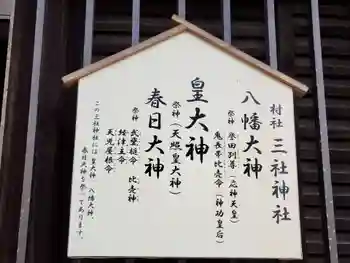 村社 三社神社
八幡大神
祭神 誉田別尊(応神天皇)
息長帯比売命(神功皇后)
皇大神
祭神(天照皇大神)
春日大神
祭神 武甕槌命 比売神
経津主命
天児屋根命
この三社神社には皇大神 八幡大神、
春日大神を祭ってあります。